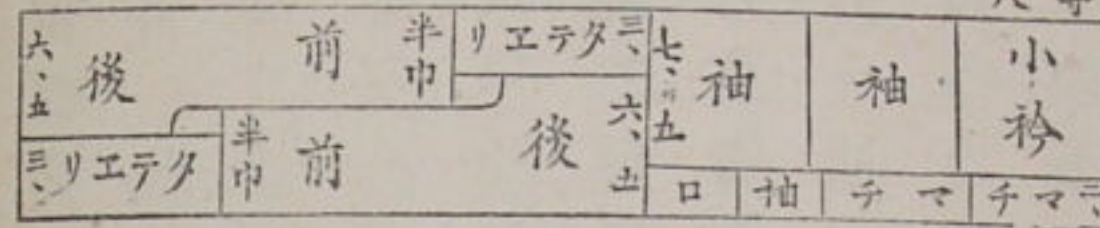 小衿
袖
袖
七、五
三、タテヱリ
半巾
前
後
六、五
マチ
マチ
袖口
六、五
後
前
半巾
タテエリ
三、